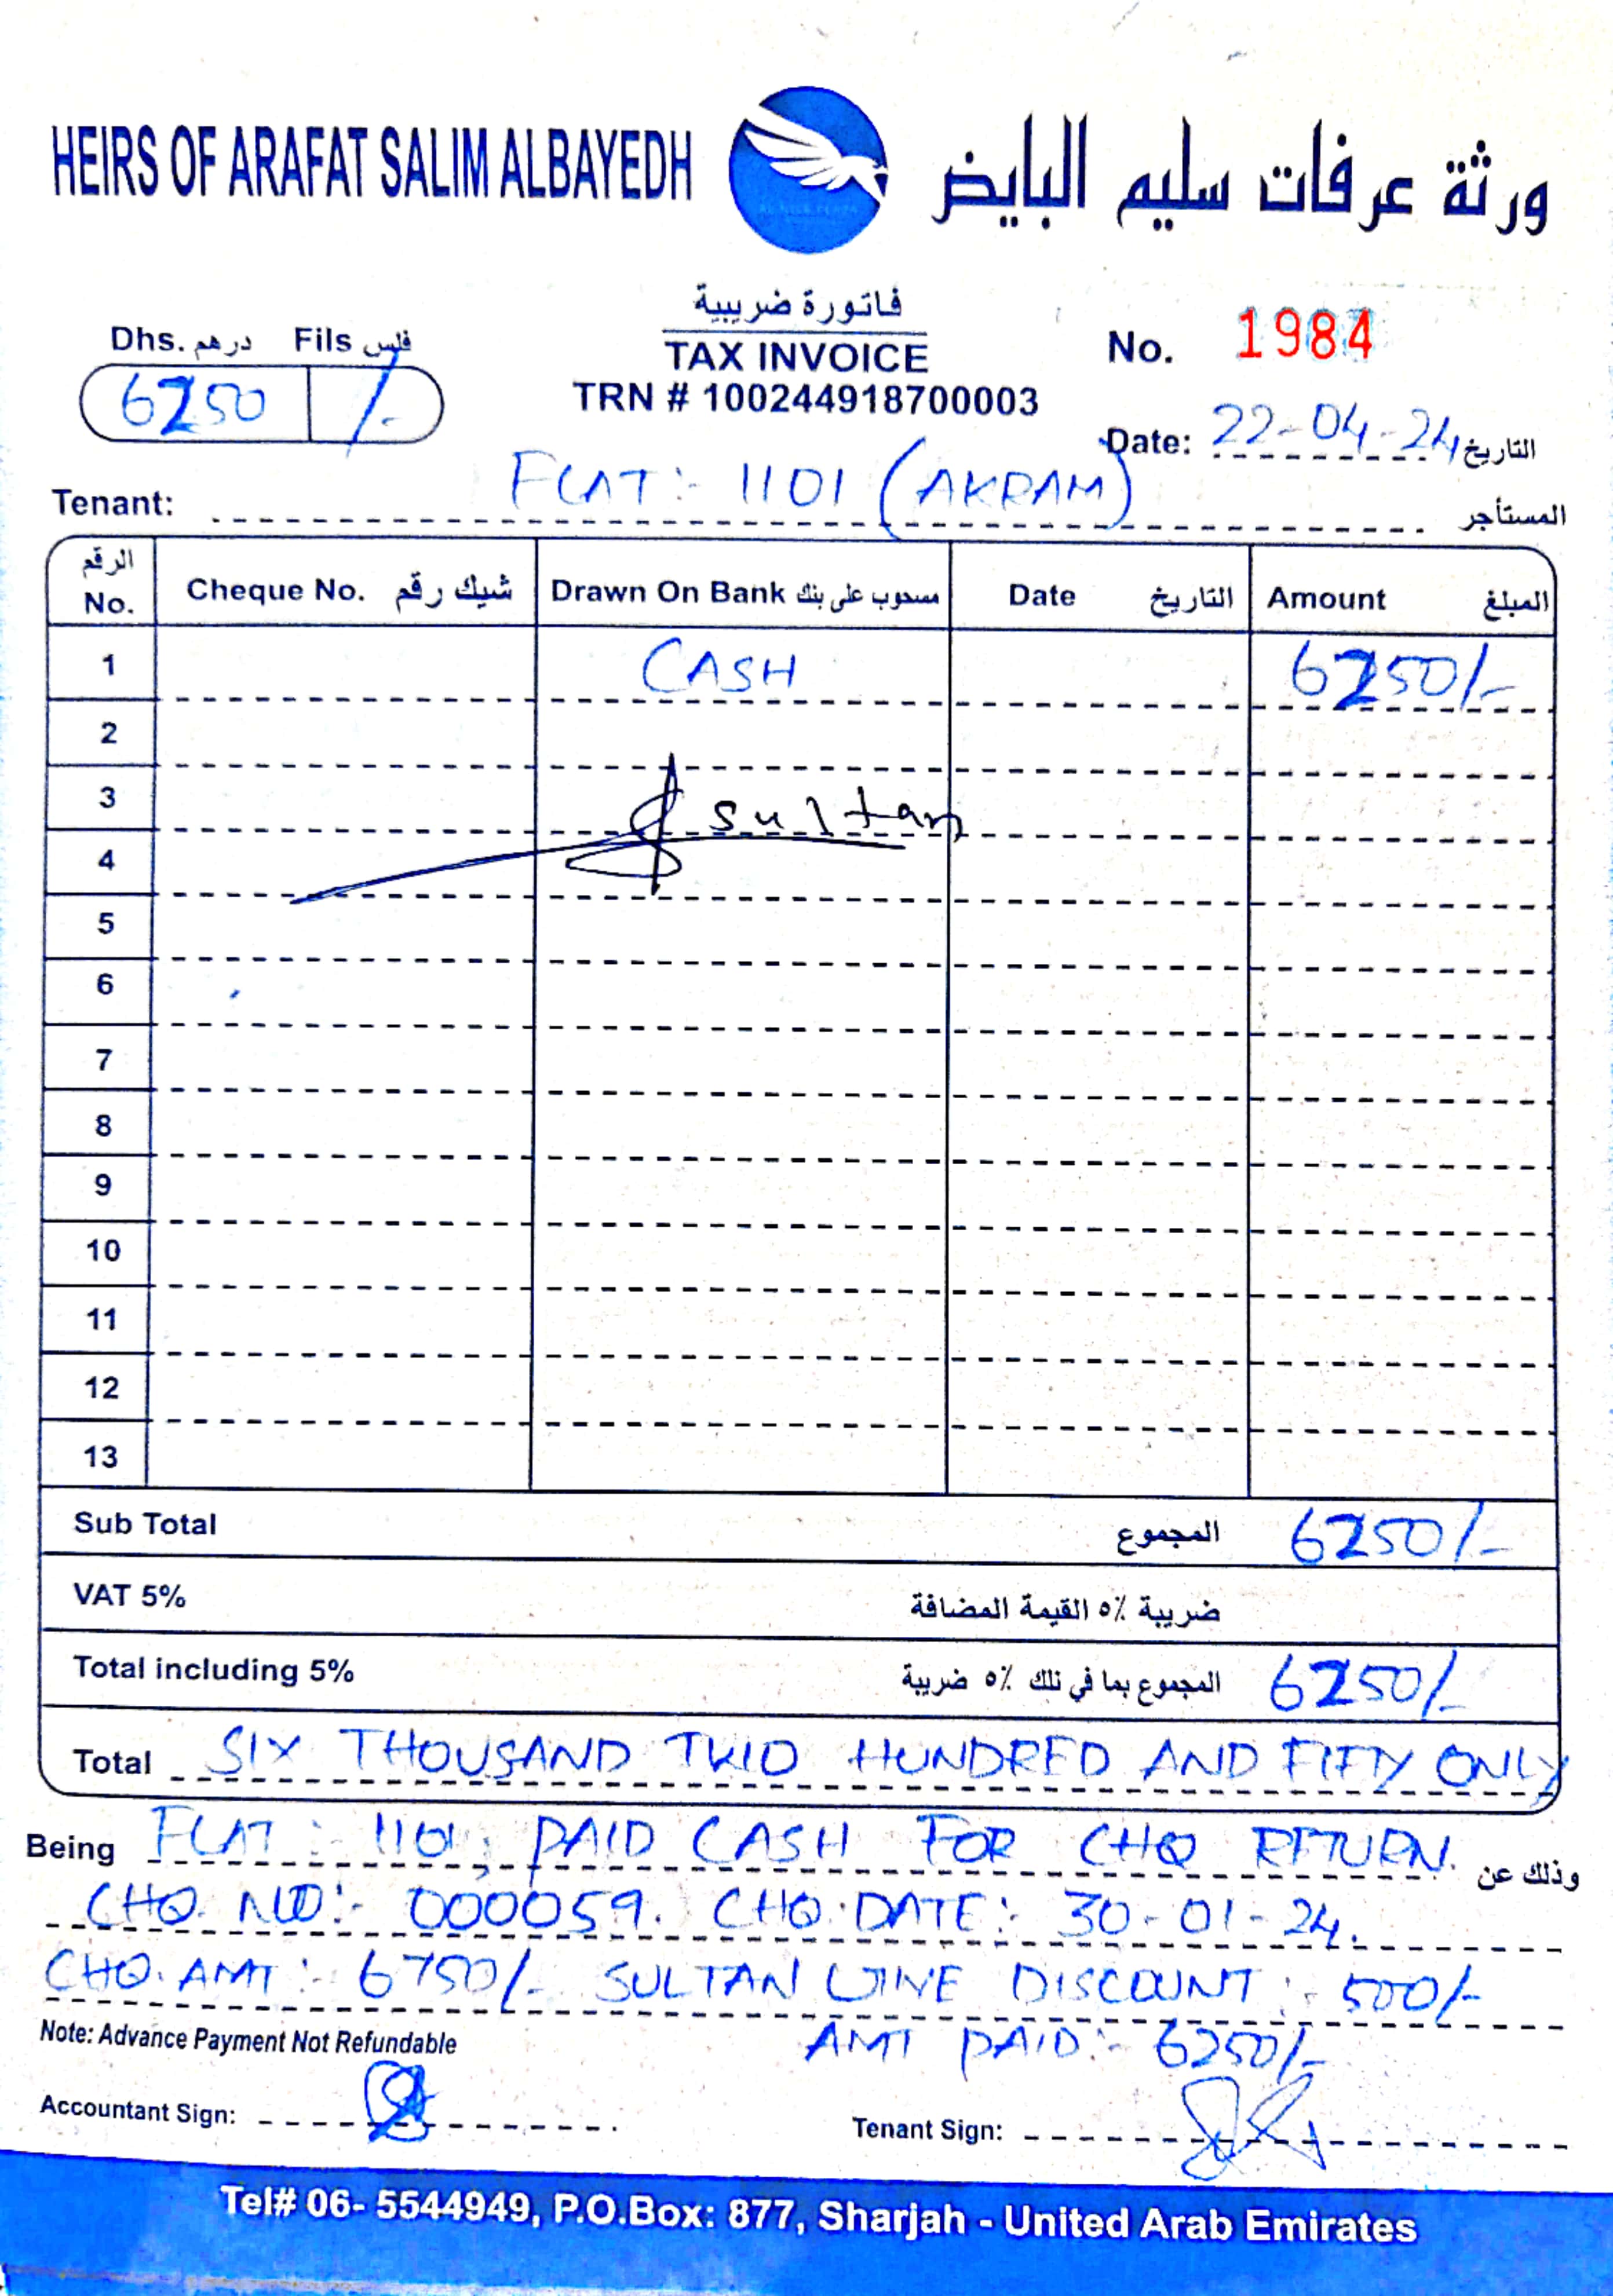 HEIRS OF ARAFAT SALIM ALBAYEDH ورثة عرفات سليم البايض
فاتورة ضريبية
TAX INVOICE
TRN # 100244918700003
Dhs. درهم Fils فلس
6250 /-
No. 1984
Date: 22-04-24 التاريخ
Tenant: FLAT:- 1101 (AKRAM) المستأجر
الرقم No. Cheque No. شيك رقم Drawn On Bank مسحوب على بنك Date التاريخ Amount المبلغ
1 CASH 6250/-
2
3 sultan
4
5
6
7
8
9
10
11
12
13
Sub Total المجموع 6250/-
VAT 5% ضريبة ٥٪ القيمة المضافة
Total including 5% المجموع بما في ذلك ٥٪ ضريبة 6250/-
Total SIX THOUSAND TWO HUNDRED AND FIFTY ONLY
Being FLAT: 1101, PAID CASH FOR CHQ RETURN. وذلك عن
CHQ. NO:- 000059. CHQ.DATE:- 30-01-24.
CHQ.AMT:- 6750/- SULTAN GIVE DISCOUNT:- 500/-
Note: Advance Payment Not Refundable AMT PAID:- 6250/-
Accountant Sign: Tenant Sign:
Tel# 06- 5544949, P.O.Box: 877, Sharjah - United Arab Emirates